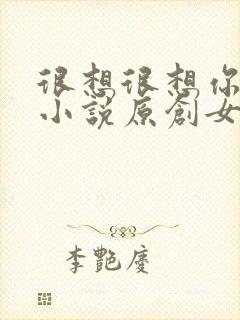 很想很想你
小說原創女
李艷慶